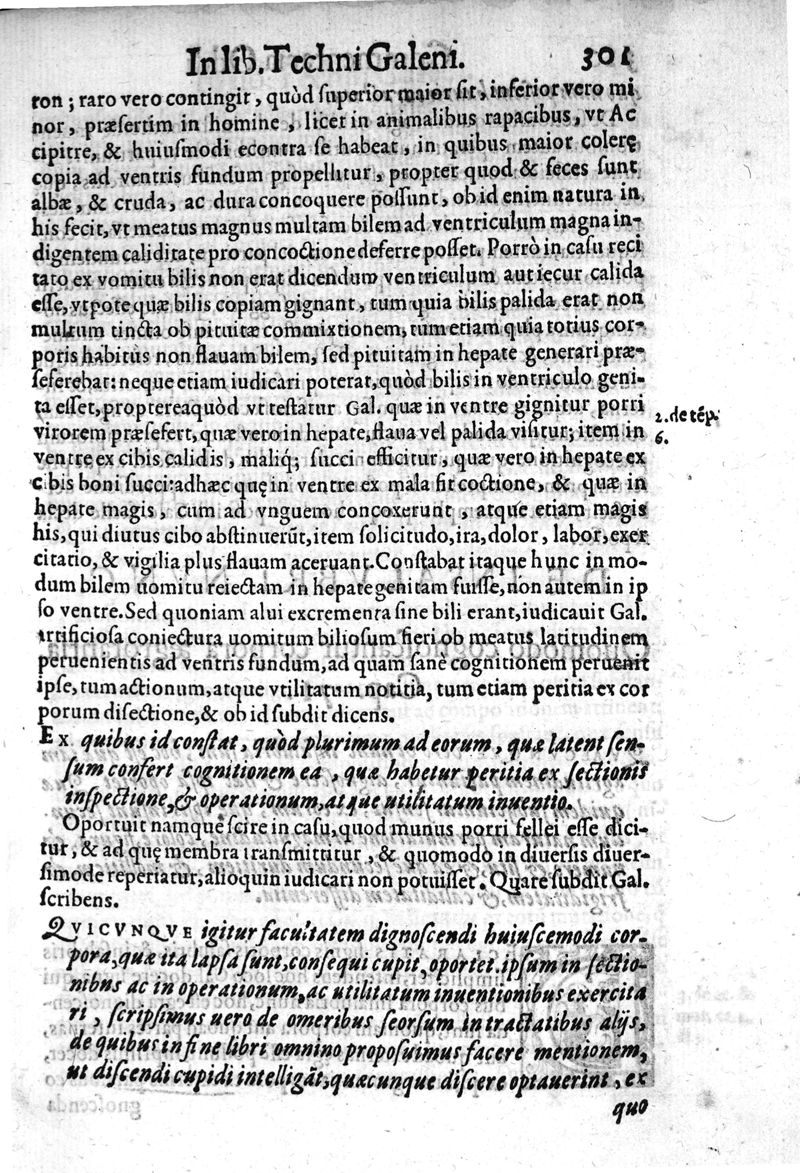 In lib. Techni Galeni. 301
ron; raro vero contingit, quòd ſuperior maior ſit, inferior vero mi
nor, præſertim in homine, licet in animalibus rapacibus, vt Ac
cipitre, & huiuſmodi econtra ſe habeat, in quibus maior colerę
copia ad ventris fundum propellitur, propter quod & feces ſunt
albæ, & cruda, ac dura concoquere poſſunt, ob id enim natura in
his fecit, vt meatus magnus multam bilem ad ventriculum magna in-
digentem caliditate pro concoctione deferre poſſet. Porrò in caſu reci
tato ex vomitu bilis non erat dicendum ventriculum aut iecur calida
eſſe, vtpote quæ bilis copiam gignant, tum quia bilis palida erat non
multum tincta ob pituitæ commixtionem, tum etiam quia totius cor-
poris habitus non flauam bilem, ſed pituitam in hepate generari præ-
ſeferebat: neque etiam iudicari poterat, quòd bilis in ventriculo geni-
ta eſſet, propterea quòd vt teſtatur Gal. quæ in ventre gignitur porri
2. de tẽp.
virorem præſefert, quæ vero in hepate, flaua vel palida viſitur; item in
6.
ventre ex cibis calidis, maliq́; ſucci efficitur, quæ vero in hepate ex
cibis boni ſucci: adhæc quę in ventre ex mala fit coctione, & quæ in
hepate magis, cum ad vnguem concoxerunt, atque etiam magis
his, qui diutus cibo abſtinuerũt, item ſolicitudo, ira, dolor, labor, exer
citatio, & vigilia plus flauam aceruant. Conſtabat itaque hunc in mo-
dum bilem uomitu reiectam in hepate genitam fuiſſe, non autem in ip
ſo ventre. Sed quoniam alui excrementa ſine bili erant, iudicauit Gal.
artificioſa coniectura uomitum bilioſum fieri ob meatus latitudinem
peruenientis ad ventris fundum, ad quam ſanè cognitionem peruenit
ipſe, tum actionum, atque vtilitatum notitia, tum etiam peritia ex cor
porum diſectione, & ob id ſubdit dicens.
Ex quibus id conſtat, quòd plurimum ad eorum, quæ latent ſen-
ſum confert cognitionem ea, quæ habetur peritia ex ſectionis
inſpectione, & operationum, atque utilitatum inuentio.
Oportuit namque ſcire in caſu, quod munus porri fellei eſſe dici-
tur, & ad quę membra tranſmittitur, & quomodo in diuerſis diuer-
ſimode reperiatur, alioquin iudicari non potuiſſet. Quare ſubdit Gal.
ſcribens.
QVICVNQVE igitur facultatem dignoſcendi huiuſcemodi cor-
pora, quæ ita lapſa ſunt, conſequi cupit, oportet. ipſum in ſectio-
nibus ac in operationum, ac utilitatum inuentionibus exercita
ri, ſcripſimus uero de omeribus ſeorſum in tractatibus alijs,
de quibus in fine libri omnino propoſuimus facere mentionem,
ut diſcendi cupidi intelligãt, quæcunque diſcere optauerint, ex
quo